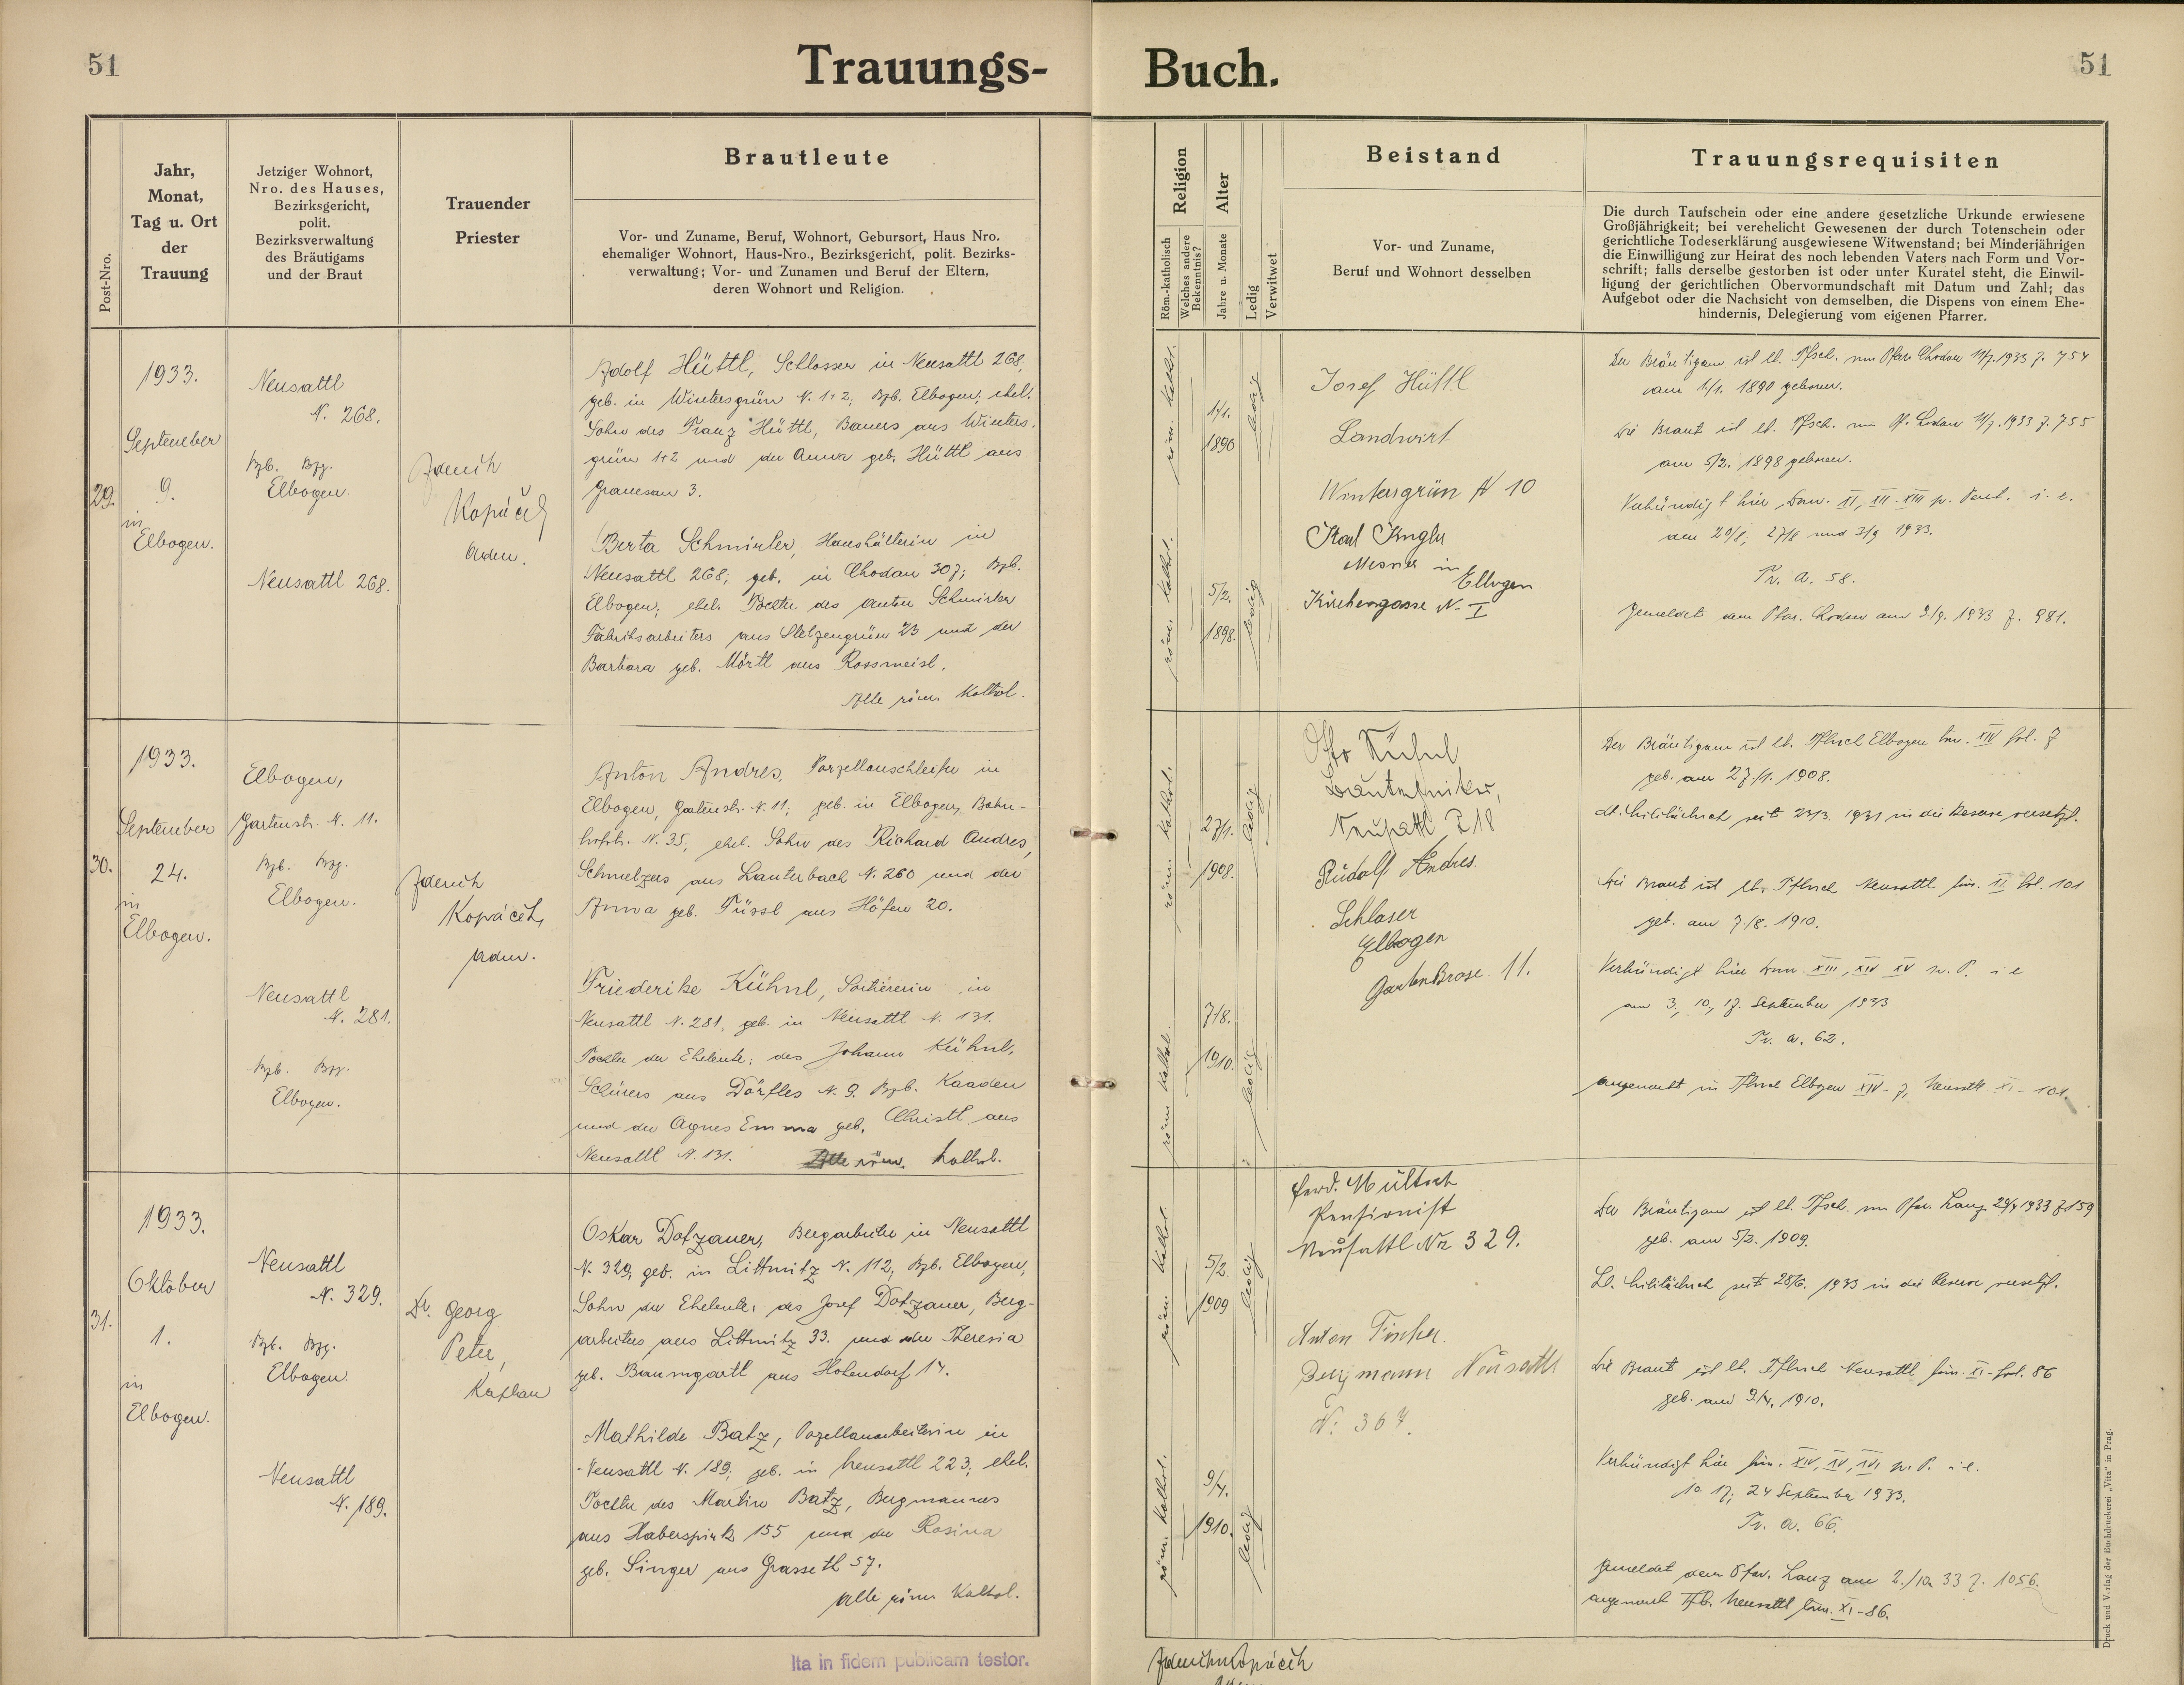 51
Trauungs-
Buch.
51
Post-Nro.
Jahr,
Monat,
Tag u. Ort
der
Trauung
Jetziger Wohnort,
Nro. des Hauses,
Bezirksgericht,
polit.
Bezirksverwaltung
des Bräutigams
und der Braut
Trauender
Priester
Brautleute
Vor- und Zuname, Beruf, Wohnort, Gebursort, Haus Nro.
ehemaliger Wohnort, Haus-Nro., Bezirksgericht, polit. Bezirks-
verwaltung; Vor- und Zunamen und Beruf der Eltern,
deren Wohnort und Religion.
Religion
Röm.-katholisch
Welches andere
Bekenntnis?
Alter
Jahre u. Monate
Ledig
Verwitwet
Beistand
Vor- und Zuname,
Beruf und Wohnort desselben
Trauungsrequisiten
Die durch Taufschein oder eine andere gesetzliche Urkunde erwiesene
Großjährigkeit; bei verehelicht Gewesenen der durch Totenschein oder
gerichtliche Todeserklärung ausgewiesene Witwenstand; bei Minderjährigen
die Einwilligung zur Heirat des noch lebenden Vaters nach Form und Vor-
schrift; falls derselbe gestorben ist oder unter Kuratel steht, die Einwil-
ligung der gerichtlichen Obervormundschaft mit Datum und Zahl; das
Aufgebot oder die Nachsicht von demselben, die Dispens von einem Ehe-
hindernis, Delegierung vom eigenen Pfarrer.
29.
1933.
September
9.
in
Elbogen.
Neusattl
N. 268.
Bzb. Bzg.
Elbogen.
Neusattl 268.
Kopáček
Adolf Hüttl, Schlosser in Neusattl 268,
geb. in Wintersgrün N. 1+2, Bzb. Elbogen, ehel.
Sohn des Franz Hüttl, Bauers aus Winters-
grün 1+2 und der Anna geb. Hüttl aus
Granesau 3.
Berta Schmirler, Haushälterin in
Neusattl 268, geb. in Chodau 307; Bzb.
Elbogen, ehel. Tochter des Anton Schmirler
Fabriksarbeiters aus Stelzengrün 23 und der
Barbara geb. Mörtl aus Rossmeisl.
Alle röm. Kathol.
röm. kathol.
1/1.
1890
ledig
röm. kathol.
5/2.
1898.
ledig
Josef Hüttl
Landwirt
Wintersgrün N 10
Karl
Mesner in
Elbogen
Kirchengasse N. I
Der Bräutigam ist lt. Tfsch. vom Pfar. Chodau 11/7.1933 Z. 754
am 1./1. 1890 geboren.
Die Braut ist lt. Tfsch. vom Pf. Chodau 11/7.1933 Z. 755
am 5/2. 1898 geboren.
Verkündigt hier Dom. XI, XII, XIII p. Pent. i. e.
am 20/8, 27/8 und 3/9 1933.
Tr. a. 58.
Gemeldet dem Pfar. Chodau am 9./9. 1933 Z. 981.
30.
1933.
September
24.
in
Elbogen.
Elbogen,
Gartenstr. N. 11.
Bzb. Bzg.
Elbogen.
Neusattl
N. 281.
Bzb. Bzg.
Elbogen.
Kopáček,
Anton Andres, Porzellanschleifer in
Elbogen, Gartenstr. N. 11; geb. in Elbogen, Bahn-
hofstr. N. 35, ehel. Sohn des Richard Andres,
Schmelzers aus Lauterbach N. 260 und der
Anna geb. Füssl aus Höfen 20.
Friederike Kühnl, Sortiererin in
Neusattl N. 281, geb. in Neusattl N. 131.
Tochter der Eheleute: des Johann Kühnl,
Schürers aus Dörfles N. 9. Bzb. Kaaden
und der Agnes Emma geb. Christl aus
Neusattl N. 131. Alle röm. kathol.
röm. kathol.
27/1.
1908.
ledig
röm. kathol.
7/8.
1910.
ledig
Otto Kühnl
Bautechniker,
Neusattl 218
Rudolf Andres.
Schlaser
Elbogen
Gartenstrase 11.
Der Bräutigam ist lt. Tfbuch Elbogen tom. XIV fol. 7
geb. am 27./1. 1908.
Lt. Militärbuch seit 23/3. 1931 in die Reserve versetzt.
Die Braut ist lt. Tfbuch Neusattl tom. XI fol. 101
geb. am 7./8. 1910.
Verkündigt hier Dom. XIII, XIV XV p. P. i. e
am 3, 10, 17. September 1933
Tr. a. 62.
Angemerkt in Tfbuch Elbogen XIV-7, Neusattl XI-101.
31.
1933.
Oktober
1.
in
Elbogen.
Neusattl
N. 329.
Bzb. Bzg.
Elbogen.
Neusattl
N. 189.
Dr. Georg
Peter,
Kaplan
Oskar Dotzauer, Bergarbeiter in Neusattl
N. 329, geb. in Littmitz N. 112, Bzb. Elbogen,
Sohn der Eheleute: des Josef Dotzauer, Berg-
arbeiters aus Littmitz 33. und der Theresia
geb. Baumgartl aus Hohendorf 14.
Mathilde Batz, Porzellanarbeiterin in
Neusattl N. 189; geb. in Neusattl 223; ehel.
Tochter des Martin Batz, Bergmannes
aus Haberspirk 155 und der Rosina
geb. Singer aus Grasseth 57.
Alle röm. Kathol.
röm. kathol.
5/2.
1909
ledig
röm. kathol.
9/4.
1910.
ledig
Ferd. Mültsch
Pensionist
Neusattl Nr 329.
Anton Fischer.
Bergmann Neusattl
N: 367.
Der Bräutigam ist lt. Tfsch. vom Pfar. Lanz 1933 Z 159
geb. am 5/2. 1909.
Lt. Militärbuch seit 28/6. 1933 in die Reserve versetzt.
Die Braut ist lt. Tfbuch Neusattl tom. XI - fol. 86
geb. am 9./4. 1910.
Verkündigt hier Dom. XIV, XV, XVI p. P. i. e.
10. 17; 24 September 1933.
Tr. a. 66.
Gemeldet dem Pfar. Lanz am 2./10 33 Z. 1056.
angemerkt Tfb. Neusattl tom. XI-86.
Ita in fidem publicam testor.
Druck und Verlag der Buchdruckerei „Vita" in Prag.